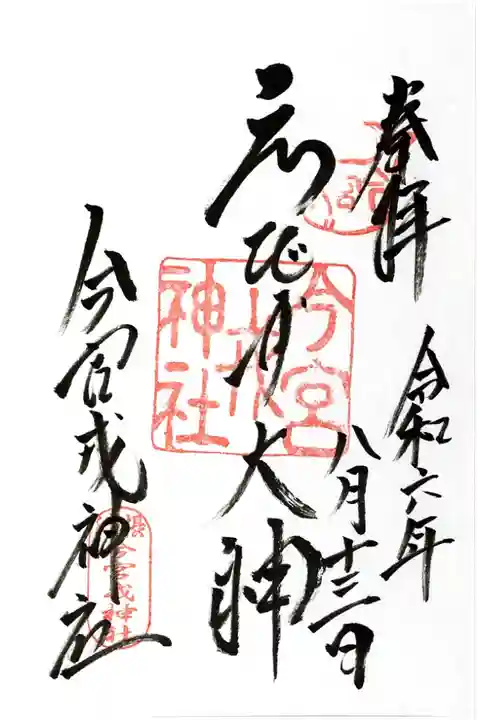 奉拝
令和六年
八月十三日
大神
今宮戎神社
今宮
戎
神社
今宮戎神社